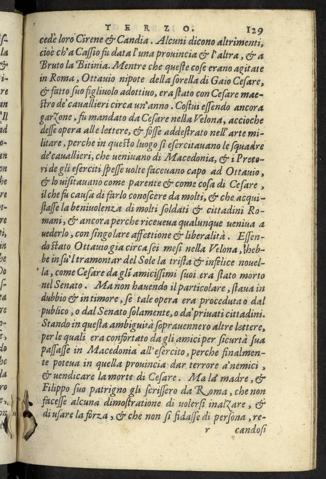 TERZO. 129
cedè loro Cirene & Candia. Alcuni dicono altrimenti,
cioè ch'a Cassio fu data l'una provincia & l'altra, & a
Bruto la Bitinia. Mentre che queste cose erano agitate
in Roma, Ottavio nipote della sorella di Gaio Cesare,
& fatto suo figliuolo adottivo, era stato con Cesare mae-
stro de cavallieri circa un'anno. Costui essendo ancora
garzone, fu mandato da Cesare nella Velona, accioche
desse opera alle lettere, & fosse addestrato nell'arte mi-
litare, perche in questo luogo si esercitavano le squadre
de'cavallieri, che venivano di Macedonia, & i Preto-
ri de gli eserciti spesse volte facevano capo ad Ottavio,
& lo visitavano come parente & come cosa di Cesare,
il che fu causa di farlo conoscere da molti, & che acqui-
stasse la benivolenza di molti soldati & cittadini Ro-
mani, & ancora perche riceveva qualunque veniva a
vederlo, con singolare affettione & liberalità. Essen-
do stato Ottavio gia circa sei mesi nella Velona, heb-
be in su'l tramontar del Sole la trista & infelice novel-
la, come Cesare da gli amicissimi suoi era stato morto
nel Senato. Ma non havendo il particolare, stava in
dubbio & in timore, se tale opera era proceduta o dal
publico, o dal Senato solamente, o da'privati cittadini.
Stando in questa ambiguità sopravennero altre lettere,
per le quali era confortato da gli amici per sicurtà sua
passasse in Macedonia all'esercito, perche finalmen-
te poteva in quella provincia dar terrore a'nemici,
& vendicare la morte di Cesare. Ma la madre, &
Filippo suo patrigno gli scrissero da Roma, che non
facesse alcuna dimostratione di volersi inalzare, &
di usare la forza, & che non si fidasse di persona, re-
r candosi